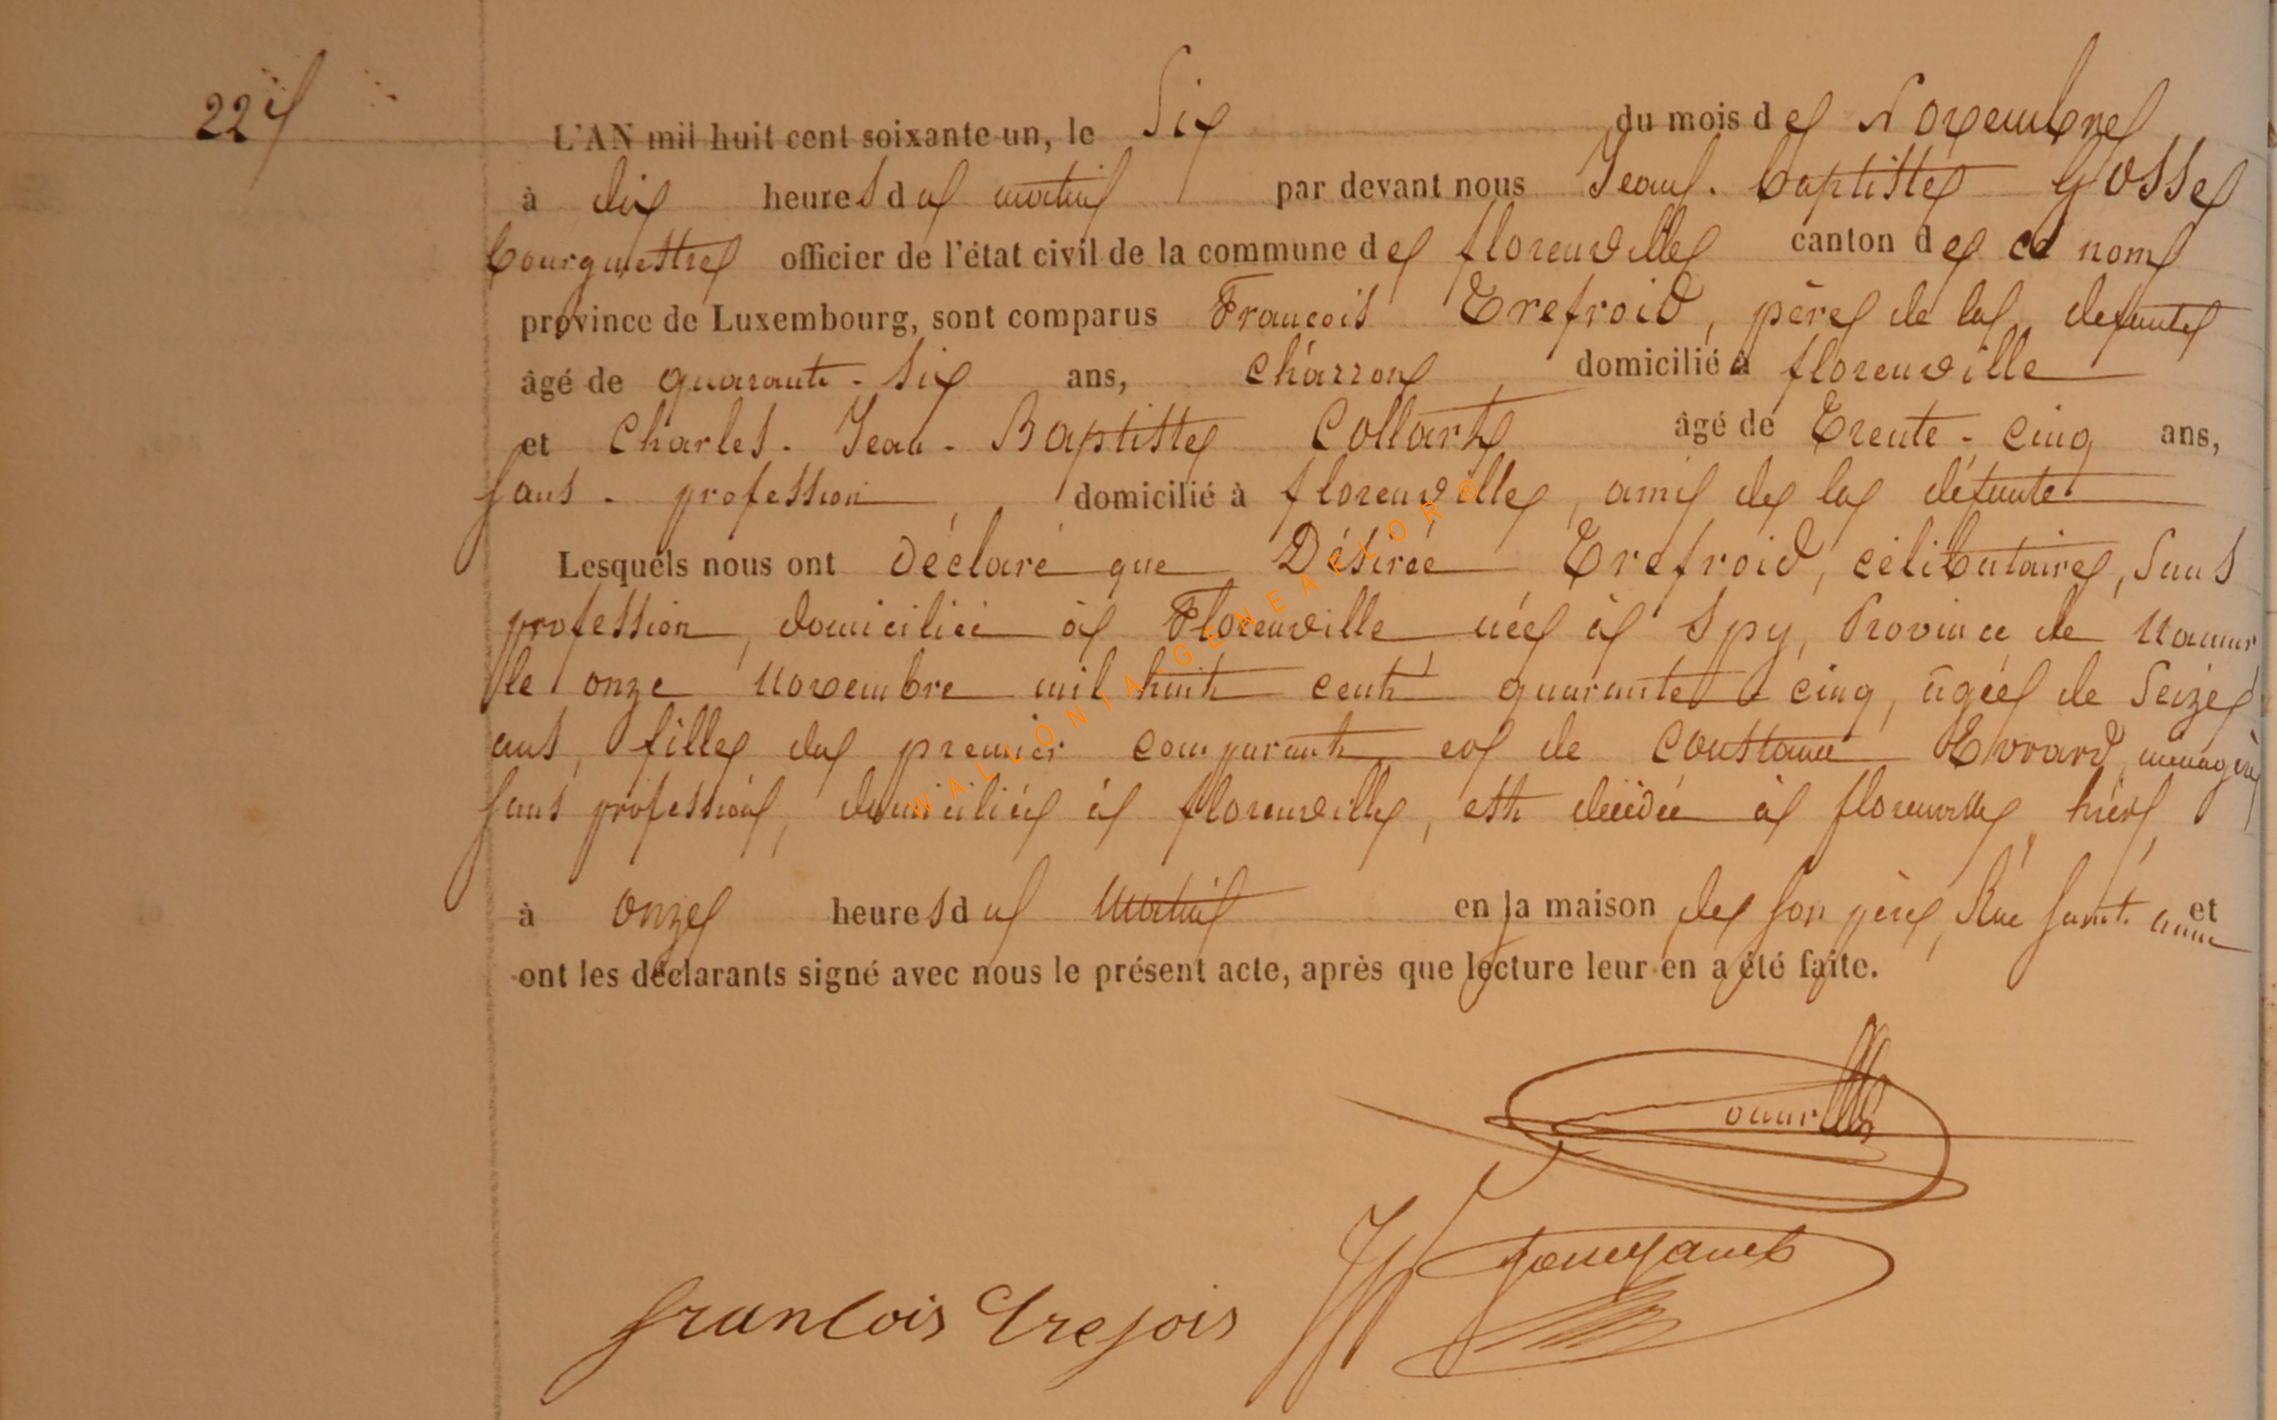 22e
L'AN mil huit cent soixante un, le Six du mois de Novembre
à dix heures du matin par devant nous Jean. Baptiste Gosse
bourgmestre officier de l'état civil de la commune de florenville canton de ce nom
province de Luxembourg, sont comparus Francois Trefroid, père de la defunte
âgé de quarante-six ans, charron, domicilié à florenville
et Charles-Jean-Baptiste Collart âgé de Trente-cinq ans,
sans-profession, domicilié à florenville, ami de la défunte
Lesquels nous ont Déclaré que Désirée Trefroid, célibataire, sans
profession, domiciliée à Florenville née à Spy, Province de Namur
le onze Novembre mil huit cent quarante-cinq, âgée de seize
ans, fille du premier comparant et de Constance Evrard, ménagère
sans profession, domiciliée à florenville, est décédée à florenville, hier,
à onze heures du matin en la maison de son père, Rue saint. anne et
ont les déclarants signé avec nous le présent acte, après que lecture leur en a été faite.
francois trefois
WALLONIA-GENEALOR ®